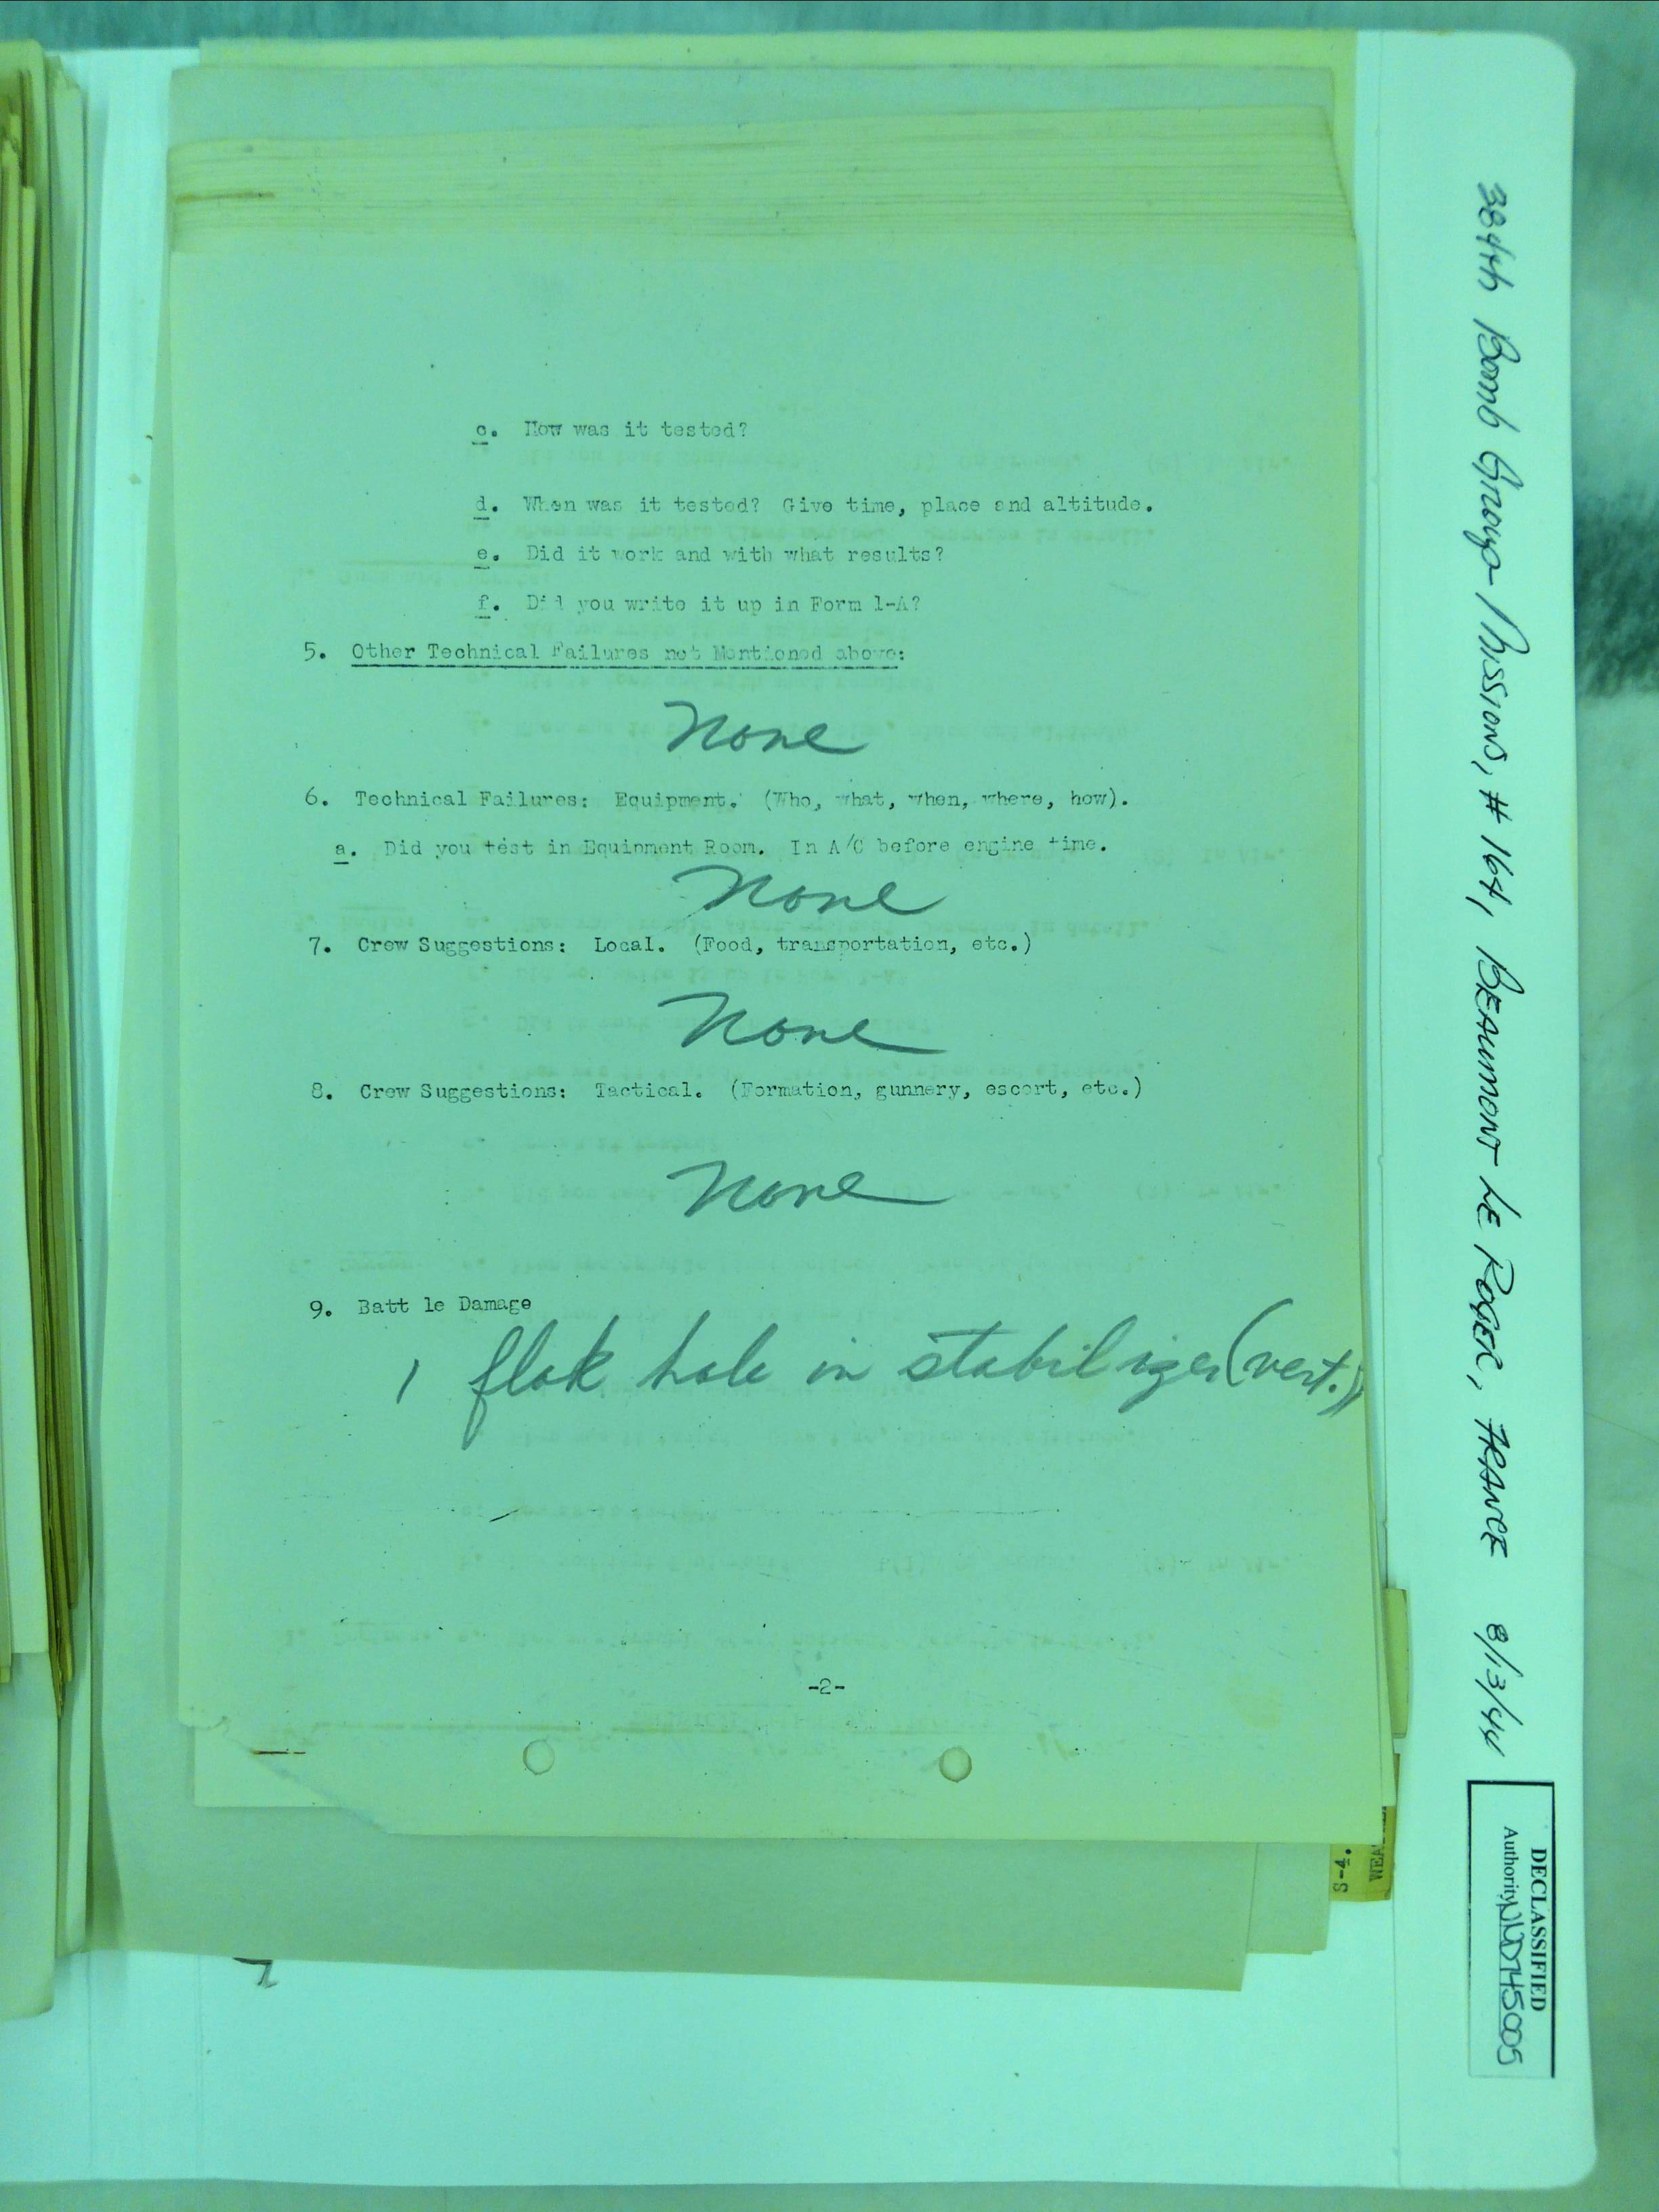 c. How was it tested?
d. When was it tested? Give time, place and altitude.
e. Did it work and with what results?
f. Did you write it up in Form 1-A?
5. Other Technical Failures not Mentioned above:
None
6. Technical Failures: Equipment. (Who, what, when, where, how).
a. Did you test in Equipment Room. In A/C before engine time.
None
7. Crew Suggestions: Local. (Food, transportation, etc.)
None
8. Crew Suggestions: Tactical. (Formation, gunnery, escort, etc.)
None
9. Batt le Damage
1 flak hole in stabilizer (vert.)
-2-
384th Bomb Group - Missions, # 164, BEAUMONT LE ROGER, FRANCE 8/13/44
DECLASSIFIED
Authority NND745005
S-4.